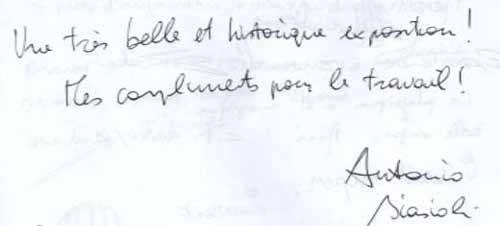 Une très belle et historique exposition !
Mes compliments pour le travail !
Antonio